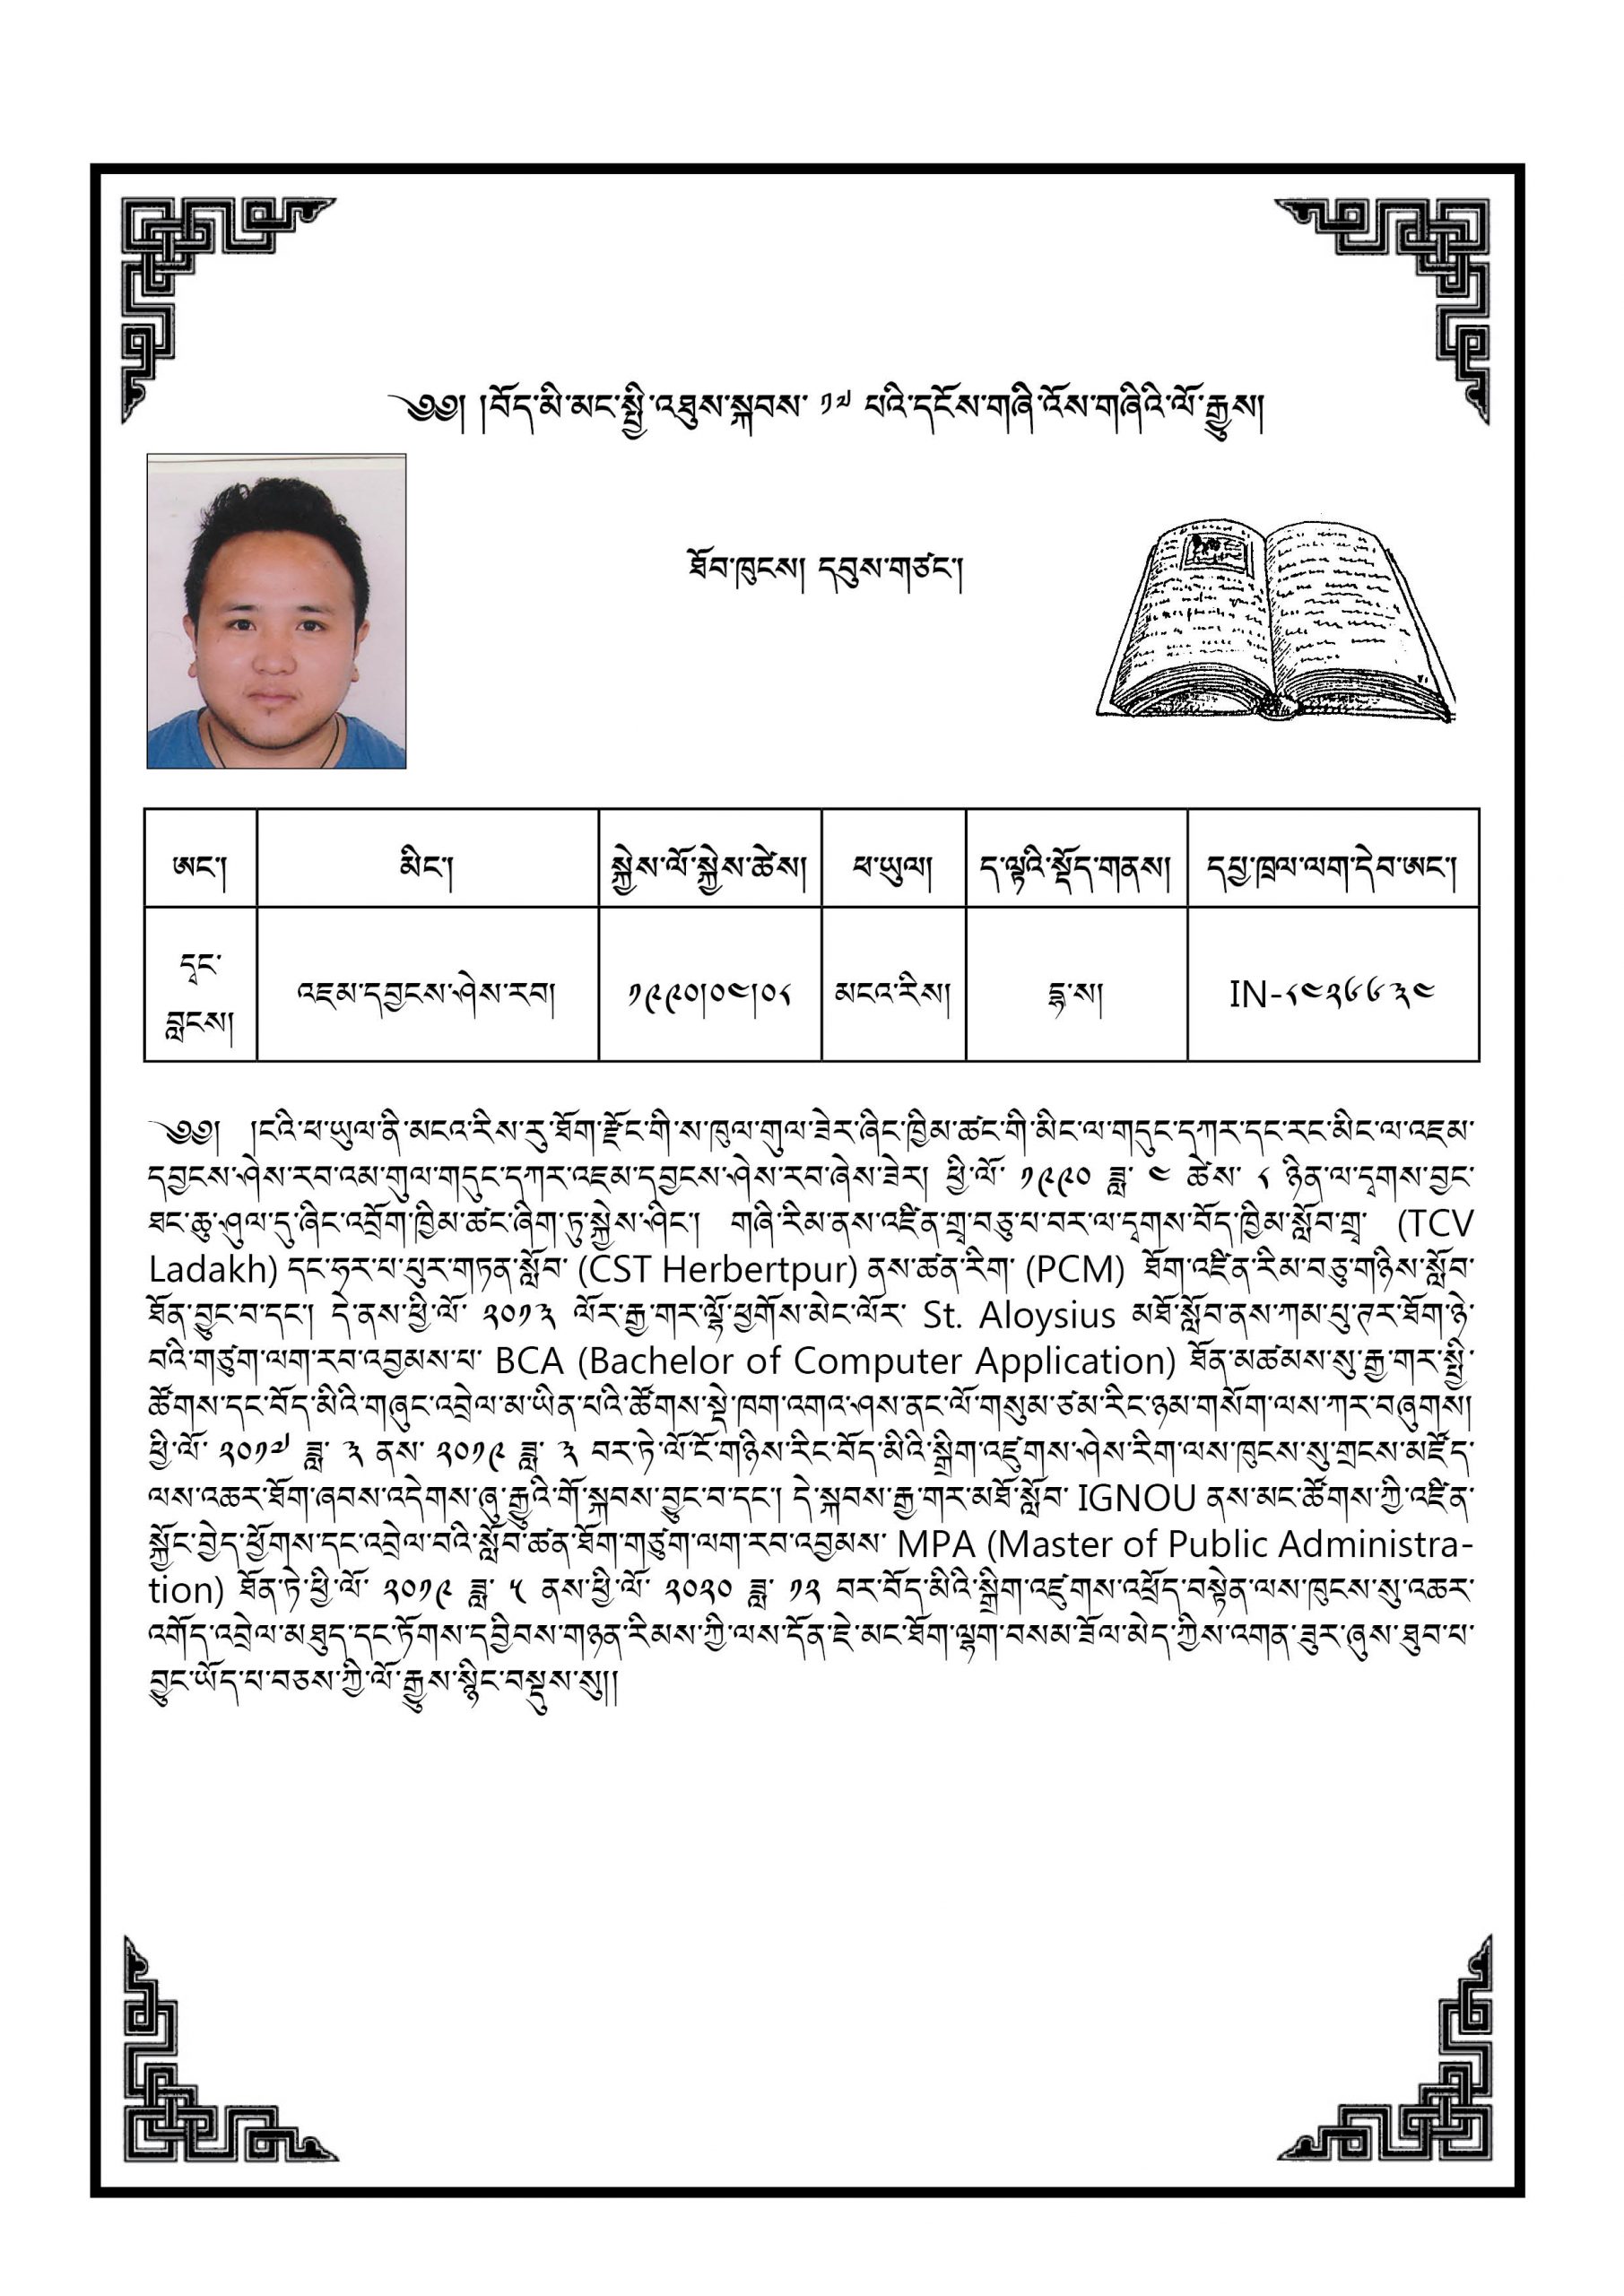 ༄༅། །བོད་མི་མང་སྤྱི་འཐུས་སྐབས་ ༡༧ པའི་དངོས་གཞིའི་འོས་གཞིའི་ལོ་རྒྱུས།
ཐོབ་ཁུངས། དབུས་གཙང་།
ཨང་། མིང་། སྐྱེས་ལོ་སྐྱེས་ཚེས། ཕ་ཡུལ། ད་ལྟའི་སྡོད་གནས། དཔྱ་ཁྲལ་ལག་དེབ་ཨང་།
དྭང་
བླངས། འཇམ་དབྱངས་ཤེས་རབ། ༡༩༩༠།༠༤།༠༨ མངའ་རིས། དྷ་ས། IN-༨༤༢༦༦༣༤
༄༅། །ངའི་ཕ་ཡུལ་ནི་མངའ་རིས་རུ་ཐོག་རྫོང་གི་ས་ཁུལ་གུལ་ཟེར་ཞིང་ཁྱིམ་ཚང་གི་མིང་ལ་གདུང་དཀར་དང་རང་མིང་ལ་འཇམ་
དབྱངས་ཤེས་རབ་འམ་གུལ་གདུང་དཀར་འཇམ་དབྱངས་ཤེས་རབ་ཞེས་ཟེར། ཕྱི་ལོ་ ༡༩༩༠ ཟླ་ ༤ ཚེས་ ༨ ཉིན་ལ་དྭགས་བྱང་
ཐང་ཆུ་ཤུལ་དུ་ཞིང་འབྲོག་ཁྱིམ་ཚང་ཞིག་ཏུ་སྐྱེས་ཤིང་། གཞི་རིམ་ནས་འཛིན་གྲྭ་བཅུ་པ་བར་ལ་དྭགས་བོད་ཁྱིམ་སློབ་གྲྭ་ (TCV
Ladakh) དང་ཧར་པ་པུར་གཏན་སློབ་ (CST Herbertpur) ནས་ཚན་རིག་ (PCM) ཐོག་འཛིན་རིམ་བཅུ་གཉིས་སློབ་
ཐོན་བྱུང་བ་དང་། དེ་ནས་ཕྱི་ལོ་ ༢༠༡༣ ལོར་རྒྱ་གར་ལྷོ་ཕྱོགས་མེང་ལོར་ St. Aloysius མཐོ་སློབ་ནས་ཀམ་པུ་ཊར་ཐོག་ཉེ་
བའི་གཙུག་ལག་རབ་འབྱམས་པ་ BCA (Bachelor of Computer Application) ཐོན་མཚམས་སུ་རྒྱ་གར་སྤྱི་
ཚོགས་དང་བོད་མིའི་གཞུང་འབྲེལ་མ་ཡིན་པའི་ཚོགས་སྡེ་ཁག་འགའ་ཤས་ནང་ལོ་གསུམ་ཙམ་རིང་ཉམ་གསོག་ལས་ཀར་བཞུགས།
ཕྱི་ལོ་ ༢༠༡༧ ཟླ་ ༣ ནས་ ༢༠༡༩ ཟླ་ ༣ བར་ཏེ་ལོ་ངོ་གཉིས་རིང་བོད་མིའི་སྒྲིག་འཛུགས་ཤེས་རིག་ལས་ཁུངས་སུ་གྲངས་མཛོད་
ལས་འཆར་ཐོག་ཞབས་འདེགས་ཞུ་རྒྱུའི་གོ་སྐབས་བྱུང་བ་དང་། དེ་སྐབས་རྒྱ་གར་མཐོ་སློབ་ IGNOU ནས་མང་ཚོགས་ཀྱི་འཛིན་
སྐྱོང་བྱེད་ཕྱོགས་དང་འབྲེལ་བའི་སློབ་ཚན་ཐོག་གཙུག་ལག་རབ་འབྱམས་ MPA (Master of Public Administra-
tion) ཐོན་ཏེ་ཕྱི་ལོ་ ༢༠༡༩ ཟླ་ ༥ ནས་ཕྱི་ལོ་ ༢༠༢༠ ཟླ་ ༡༢ བར་བོད་མིའི་སྒྲིག་འཛུགས་འཕྲོད་བསྟེན་ལས་ཁུངས་སུ་འཆར་
འགོད་འབྲེལ་མཐུད་དང་ཏོགས་དབྱིབས་གཉན་རིམས་ཀྱི་ལས་དོན་ཇེ་མང་ཐོག་ལྷག་བསམ་ཟོལ་མེད་ཀྱིས་འགན་ཟུར་ཞུས་ཐུབ་པ་
བྱུང་ཡོད་པ་བཅས་ཀྱི་ལོ་རྒྱུས་སྙིང་བསྡུས་སུ།།